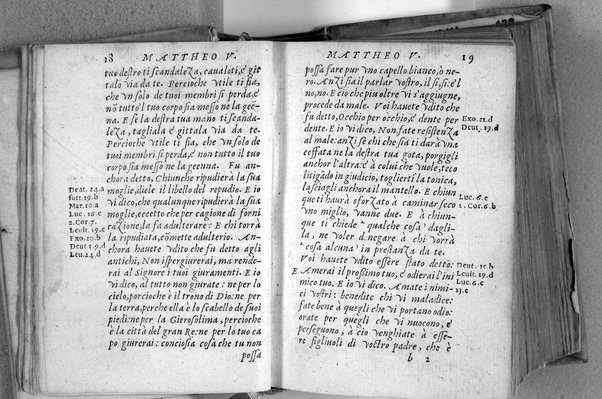 18 MATTHEO V.
tuo destro ti scandaleza, caualoti, e' git
talo via da te. Percioche vtile ti sia,
che vn solo de tuoi membri si perda, e'
nō tutto'l tuo corpo sia messo ne la gee-
na. E se la destra tua mano ti scanda-
leza, tagliala e' gittala via da te.
Percioche vtile ti sia, che vn solo de
tuoi membri si perda, e' non tutto il tuo
corpo sia messo ne la geenna. Fu an-
chora detto, Chiunche ripudierà la sua
Deut. 24.a
moglie, diele il libello del repudio. E io
Sott. 19.b
vi dico, che qualunque ripudierà la sua
Mar. 10.a
moglie, eccetto che per cagione di forni
Luc. 16.e
cazione, la fa adulterare: E chi torrà
2. Cor. 7.
la ripudiata, comette adulterio. An-
Leuit. 19.e
Exo. 20.b
chora hauete vdito che fu detto agli
Deut. 5.d
antichi, Non ispergiurerai, ma rende-
Leu. 24.d
rai al Signore i tuoi giuramenti. E io
vi dico, al tutto non giurate: ne per lo
cielo, porcioche è il trono di Dio: ne per
la terra, perche ella è lo scabello de suoi
piedi: ne per la Gierosolima, percioche
è la città del gran Re: ne per lo tuo ca
po giurerai: conciosia cosa che tu non
possa
MATTHEO V. 19
possa fare pur vno capello bianco, ò ne-
ro. Anzi sia il parlar vostro, il si, si: e'l
no, no. E cio che piu oltre vi s'aggiugne,
procede da male. Voi hauete vdito che
fu detto, Occhio per occhio, e' dente per
Exo. 21.d
dente. E io vi dico, Non fate resistenza
Deut. 19.d
al male: anzi se chi che sia ti darà vna
ceffata ne la destra tua gota, porgigli
anchor l'altra: e' à colui che vuole, teco
litigādo in giudicio, toglierti la tonica,
lasciagli anchora il mantello. E chiun
que ti haurà sforzato à caminar seco
Luc. 6.e
vno miglio, vanne due. E à chiun-
1. Cor. 6.b
que ti chiede qualche cosa dagli-
la, ne voler negare à chi vorrà
cosa alcuna in prestanza da te.
Voi hauete vdito essere stato detto:
Deut. 15.b
E Amerai il prossimo tuo, e' odierai l'ini
Leuit. 19.d
mico tuo. E io vi dico. Amate i nimi-
Luc. 6.e
ci vostri: benedite chi vi maladice:
fate bene à quegli che vi portano odio:
orate per quegli che vi nuocono, e'
perseguono, à cio venghiate à esse-
re figliuoli di vostro padre, che è
b 2